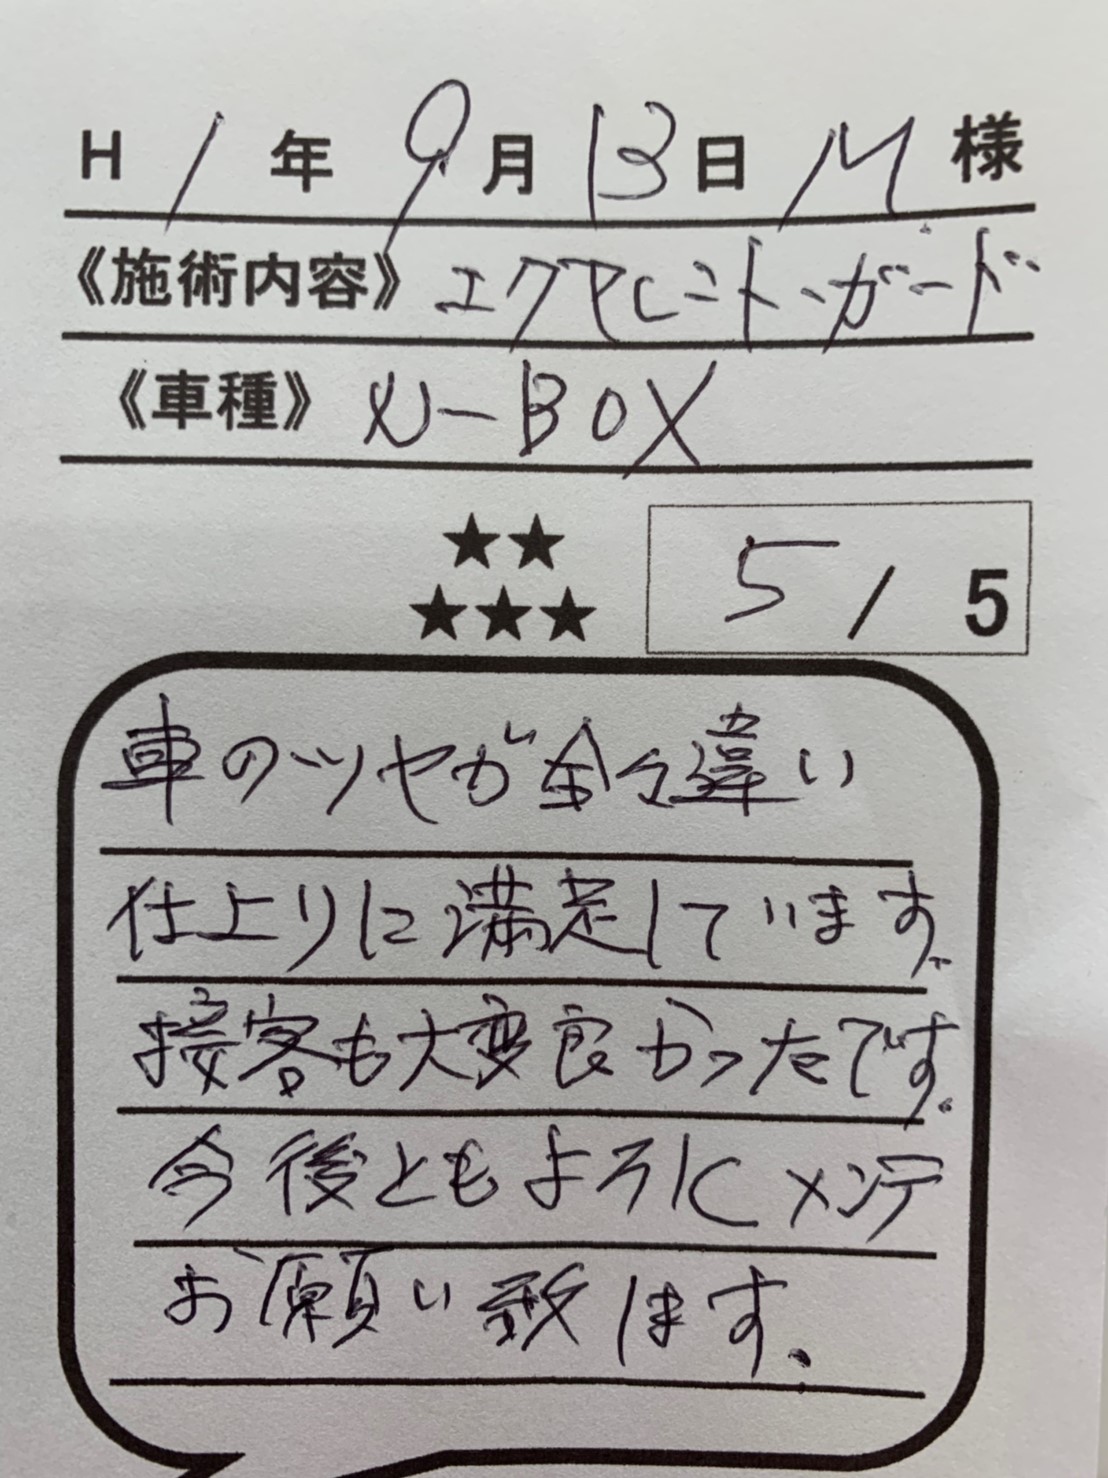 H 1年 9月 13日 M 様
《施術内容》 エクセレント・ガード
《車種》 N-BOX
★★
★★★ 5 / 5
車のツヤが全々違い
仕上りに満足しています。
接客も大変良かったです。
今後ともよろしくメンテ
お願い致します。